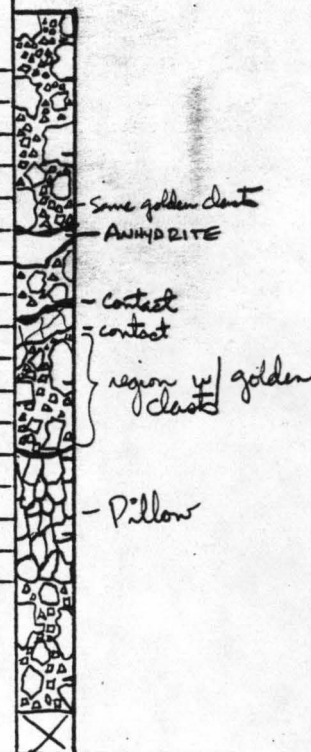 Some golden clasts
ANHYDRITE
Contact
contact
region w/ golden
clasts
Pillow